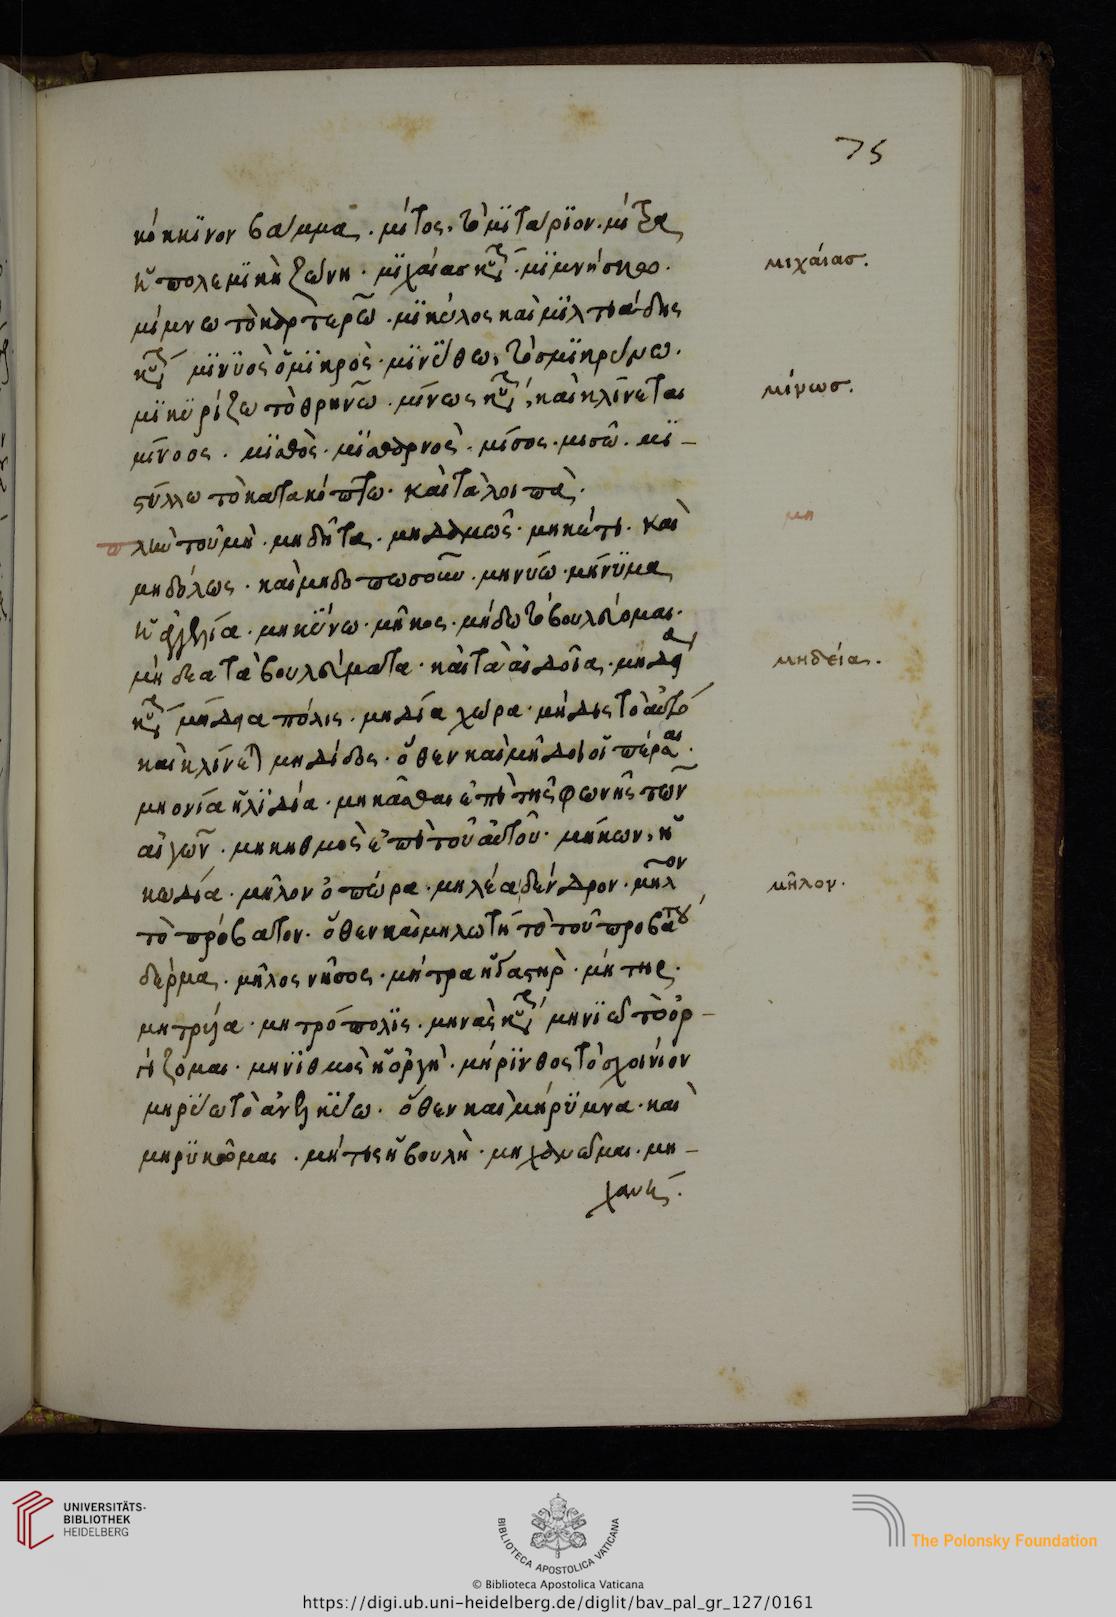 75
κόκκϊνον βάμμα. μίτος, τὸ μϊτάρϊον. μίτρα
ἡ πολεμϊκὴ ζώνη. μϊχαίας κύριον. μϊμνήσκω.
μιχαίασ.
μίμνω τὸ καρτερῶ. μϊκύλος καὶ μϊλτιάδης
κύριον μϊνϋὸς ὁ μϊκρὸς. μϊνϋθω, τὸ σμϊκρύνω.
μϊνϋρίζω τὸ θρηνῶ. μίνως κύριον, καὶ κλίνεται
μίνωσ.
μίνοος. μϊσθὸς. μϊσθαρνὸς. μῖσος. μισῶ. μϊ-
στύλλω τὸ κατακόπτω. καὶ τὰ λοιπὰ.
πλὴν τοῦ μὴ. μηδῆτα. μηδαμῶς. μηκέτι. καὶ
μη
μηδόλως. καὶ μηδοπωσοῦν. μηνύω. μήνϋμα
ἡ ἀγγελία. μηκϋνω. μῆκος. μήδω τὸ βουλεύομαι.
μήδεα τὰ βουλεύματα. καὶ τὰ αἰδοῖα. μηδείας
μηδείας.
κύριον μήδεια πόλις. μηδία χώρα. μηδὶς τὸ αὐτὸ
καὶ κλίνεται μηδίδος. ὅθεν καὶ μῆδοι οἱ πέρσαι.
μηονία ἡ λϋδία. μηκᾶσθαι ἐπὶ τῆς φωνῆς τῶν
αἰγῶν. μηκηθμὸς ἐπὶ τοῦ αὐτοῦ. μήκων, ἡ
κωδία. μῆλον ὀπώρα. μηλέα δένδρον. μῆλον
μῆλον.
τὸ πρόβατον. ὅθεν καὶ μηλωτὴ τὸ τοῦ προβάτου
δέρμα. μῆλος νῆσος. μήτρα ἡ γαστὴρ. μήτηρ.
μητρυϊα. μητρόπολϊς. μηνὰς κύριον μηνϊω τὸ ὀρ-
γίζομαι. μηνϊθμὸς ἡ ὀργὴ. μήρϊνθος τὸ σχοινίον
μηρϋω τὸ ἀντλῶ. ὅθεν καὶ μήρϋμνα. καὶ
μηρϋκῶμαι. μῆτις ἡ βουλὴ. μηχανῶμαι. μη-
χανὴ.
UNIVERSITÄTS-
BIBLIOTHEK
HEIDELBERG
BIBLIOTECA APOSTOLICA VATICANA
The Polonsky Foundation
© Biblioteca Apostolica Vaticana
https://digi.ub.uni-heidelberg.de/diglit/bav_pal_gr_127/0161